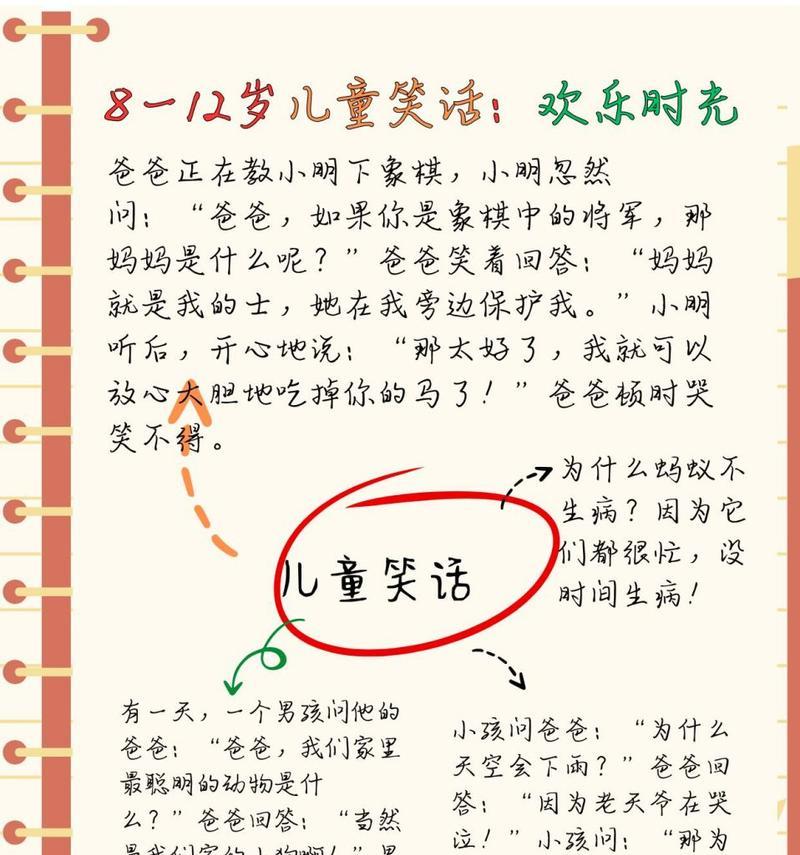 8一12岁儿童笑话：欢乐时光
爸爸正在教小明下象棋，小明忽然
问：“爸爸，如果你是象棋中的将军，那
妈妈是什么呢？”爸爸笑着回答：“妈妈
就是我的士，她在我旁边保护我。”小明
听后，开心地说：“那太好了，我就可以
放心大胆地吃掉你的马了！”爸爸顿时哭
笑不得。
为什么蚂蚁不
生病？因为它
们都很忙，没
时间生病！
儿童笑话
有一天，一个男孩问他的
爸爸：“爸爸，我们家里
最聪明的动物是什
么？”爸爸回答：“当然
是我们家的小狗啊！”男
小孩问爸爸：“为什么
天空会下雨？”爸爸回
答：“因为老天爷在哭
泣！”小孩问：“那为